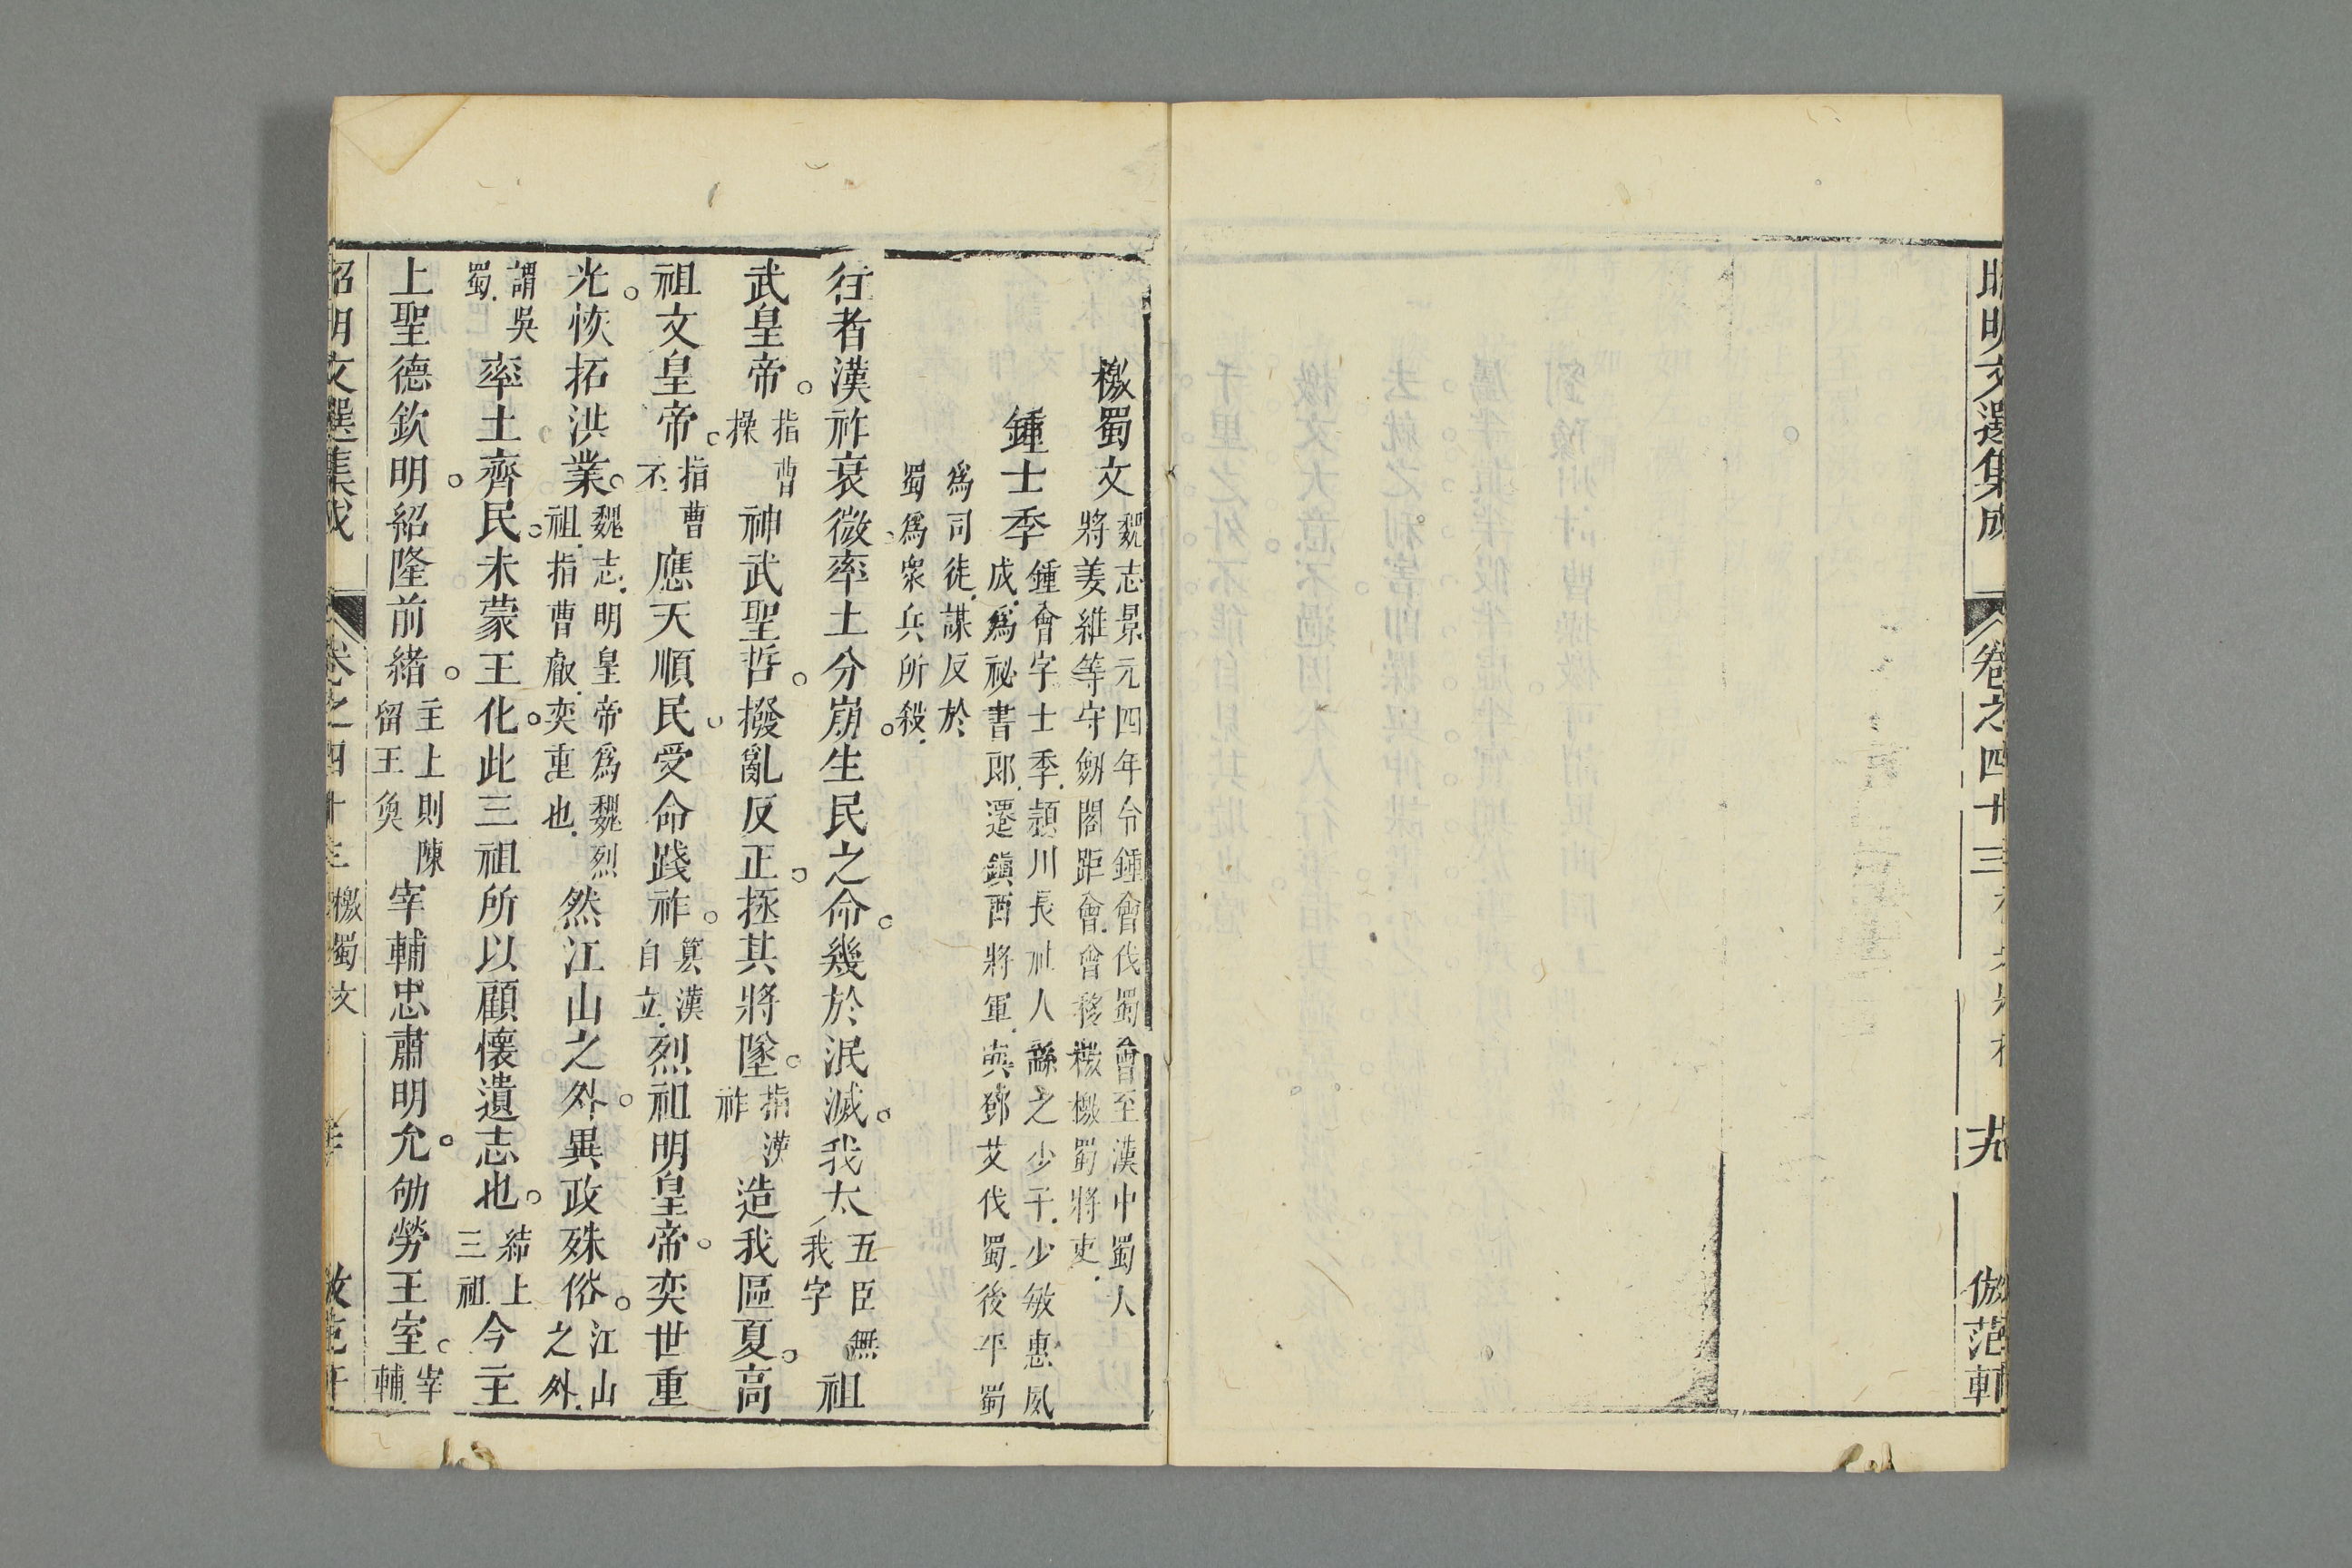 昭明文選集成 卷之四十三 倣范軒
檄蜀文 魏志景元四年令鍾會伐蜀會至漢中蜀人
將姜維等守劒閣距會.會移檄檄蜀將吏.
鍾士季 鍾會字士季.潁川長社人繇之少子.少敏惠夙
成.爲祕書郎.遷鎭西將軍.與鄧艾伐蜀.後平蜀
爲司徒.謀反於
蜀爲衆兵所殺.
往者漢祚衰微。率土分崩。生民之命。幾於泯滅。我太 五臣無
我字 祖
武皇帝。 指曹
操 神武聖哲。撥亂反正。拯其將墜。 指漢
祚 造我區夏。高
祖文皇帝。 指曹
丕 應天順民。受命踐祚。 簒漢
自立. 烈祖明皇帝。奕世重
光。恢拓洪業。 魏志.明皇帝爲魏烈
祖.指曹叡.奕重也. 然江山之外。異政殊俗。 江山
之外.
謂吳
蜀. 率土齊民。未蒙王化。此三祖所以顧懷遺志也。 結上
三祖 今主
上聖德欽明。紹隆前緒。 主上則陳
留王奐 宰輔忠肅明允。劬勞王室。 宰
輔
昭明文選集成 卷之四十三 檄蜀文 倣范軒